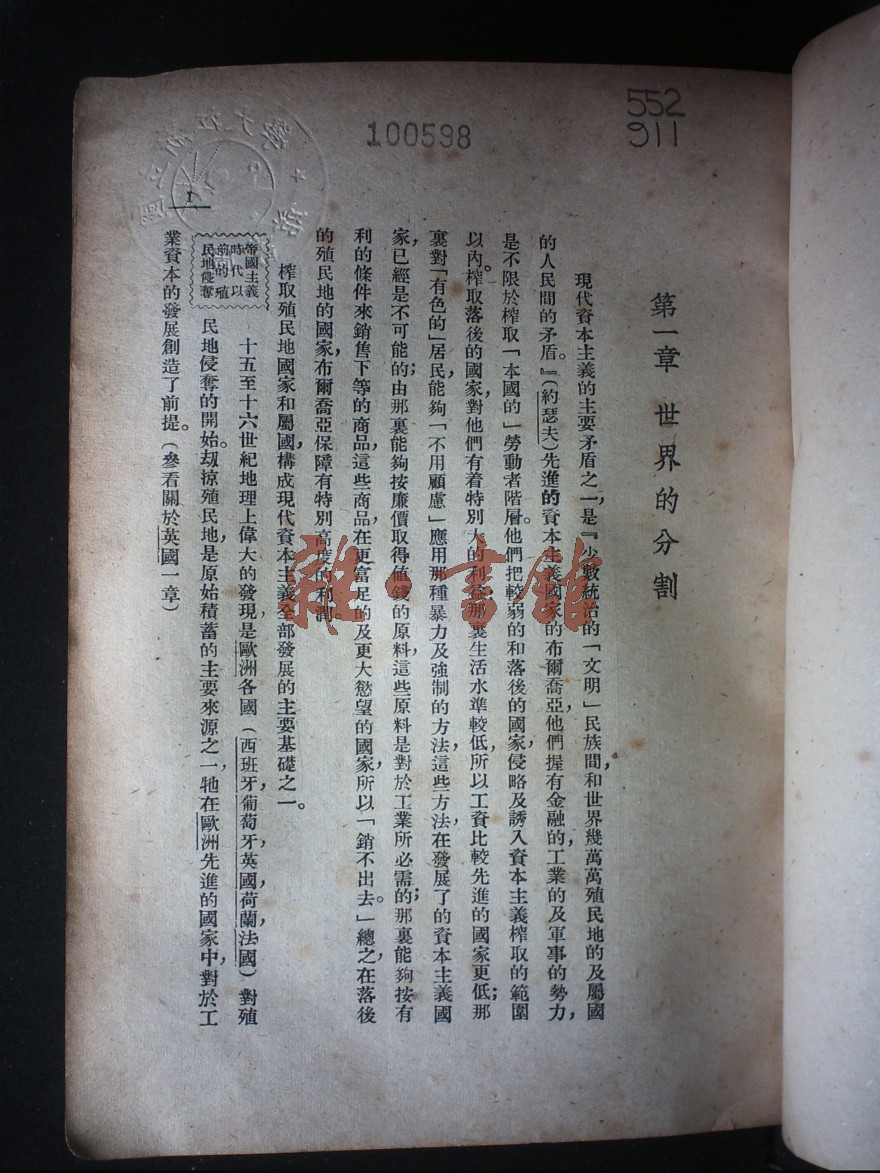 552
911
100598
第一章 世界的分割
現代資本主義的主要矛盾之一，是『少數統治的「文明」民族間，和世界幾萬萬殖民地的及屬國
的人民間的矛盾。』（約瑟夫）先進的資本主義國家的布爾喬亞，他們握有金融的，工業的及軍事的勢力，
是不限於榨取「本國的」勞動者階層。他們把較弱的和落後的國家，侵略及誘入資本主義榨取的範圍
以內。榨取落後的國家，對他們有着特別大的利益：那裏生活水準較低，所以工資比較先進的國家更低；那
裏對「有色的」居民，能夠「不用顧慮」應用那種暴力及強制的方法，這些方法，在發展了的資本主義國
家，已經是不可能的；由那裏能夠按廉價取得值錢的原料，這些原料是對於工業所必需的；那裏能夠按有
利的條件來銷售下等的商品，這些商品，在更富足的及更大慾望的國家，所以「銷不出去。」總之在落後
的殖民地的國家，布爾喬亞保障有特別高度的利潤。
榨取殖民地國家和屬國，構成現代資本主義全部發展的主要基礎之一。
帝國主義
時代以
前的殖
民地侵奪
十五至十六世紀地理上偉大的發現，是歐洲各國（西班牙，葡萄牙，英國，荷蘭，法國）對殖
民地侵奪的開始。刼掠殖民地，是原始積蓄的主要來源之一，牠在歐洲先進的國家中，對於工
業資本的發展創造了前提。（參看關於英國一章）
1
雜·書館